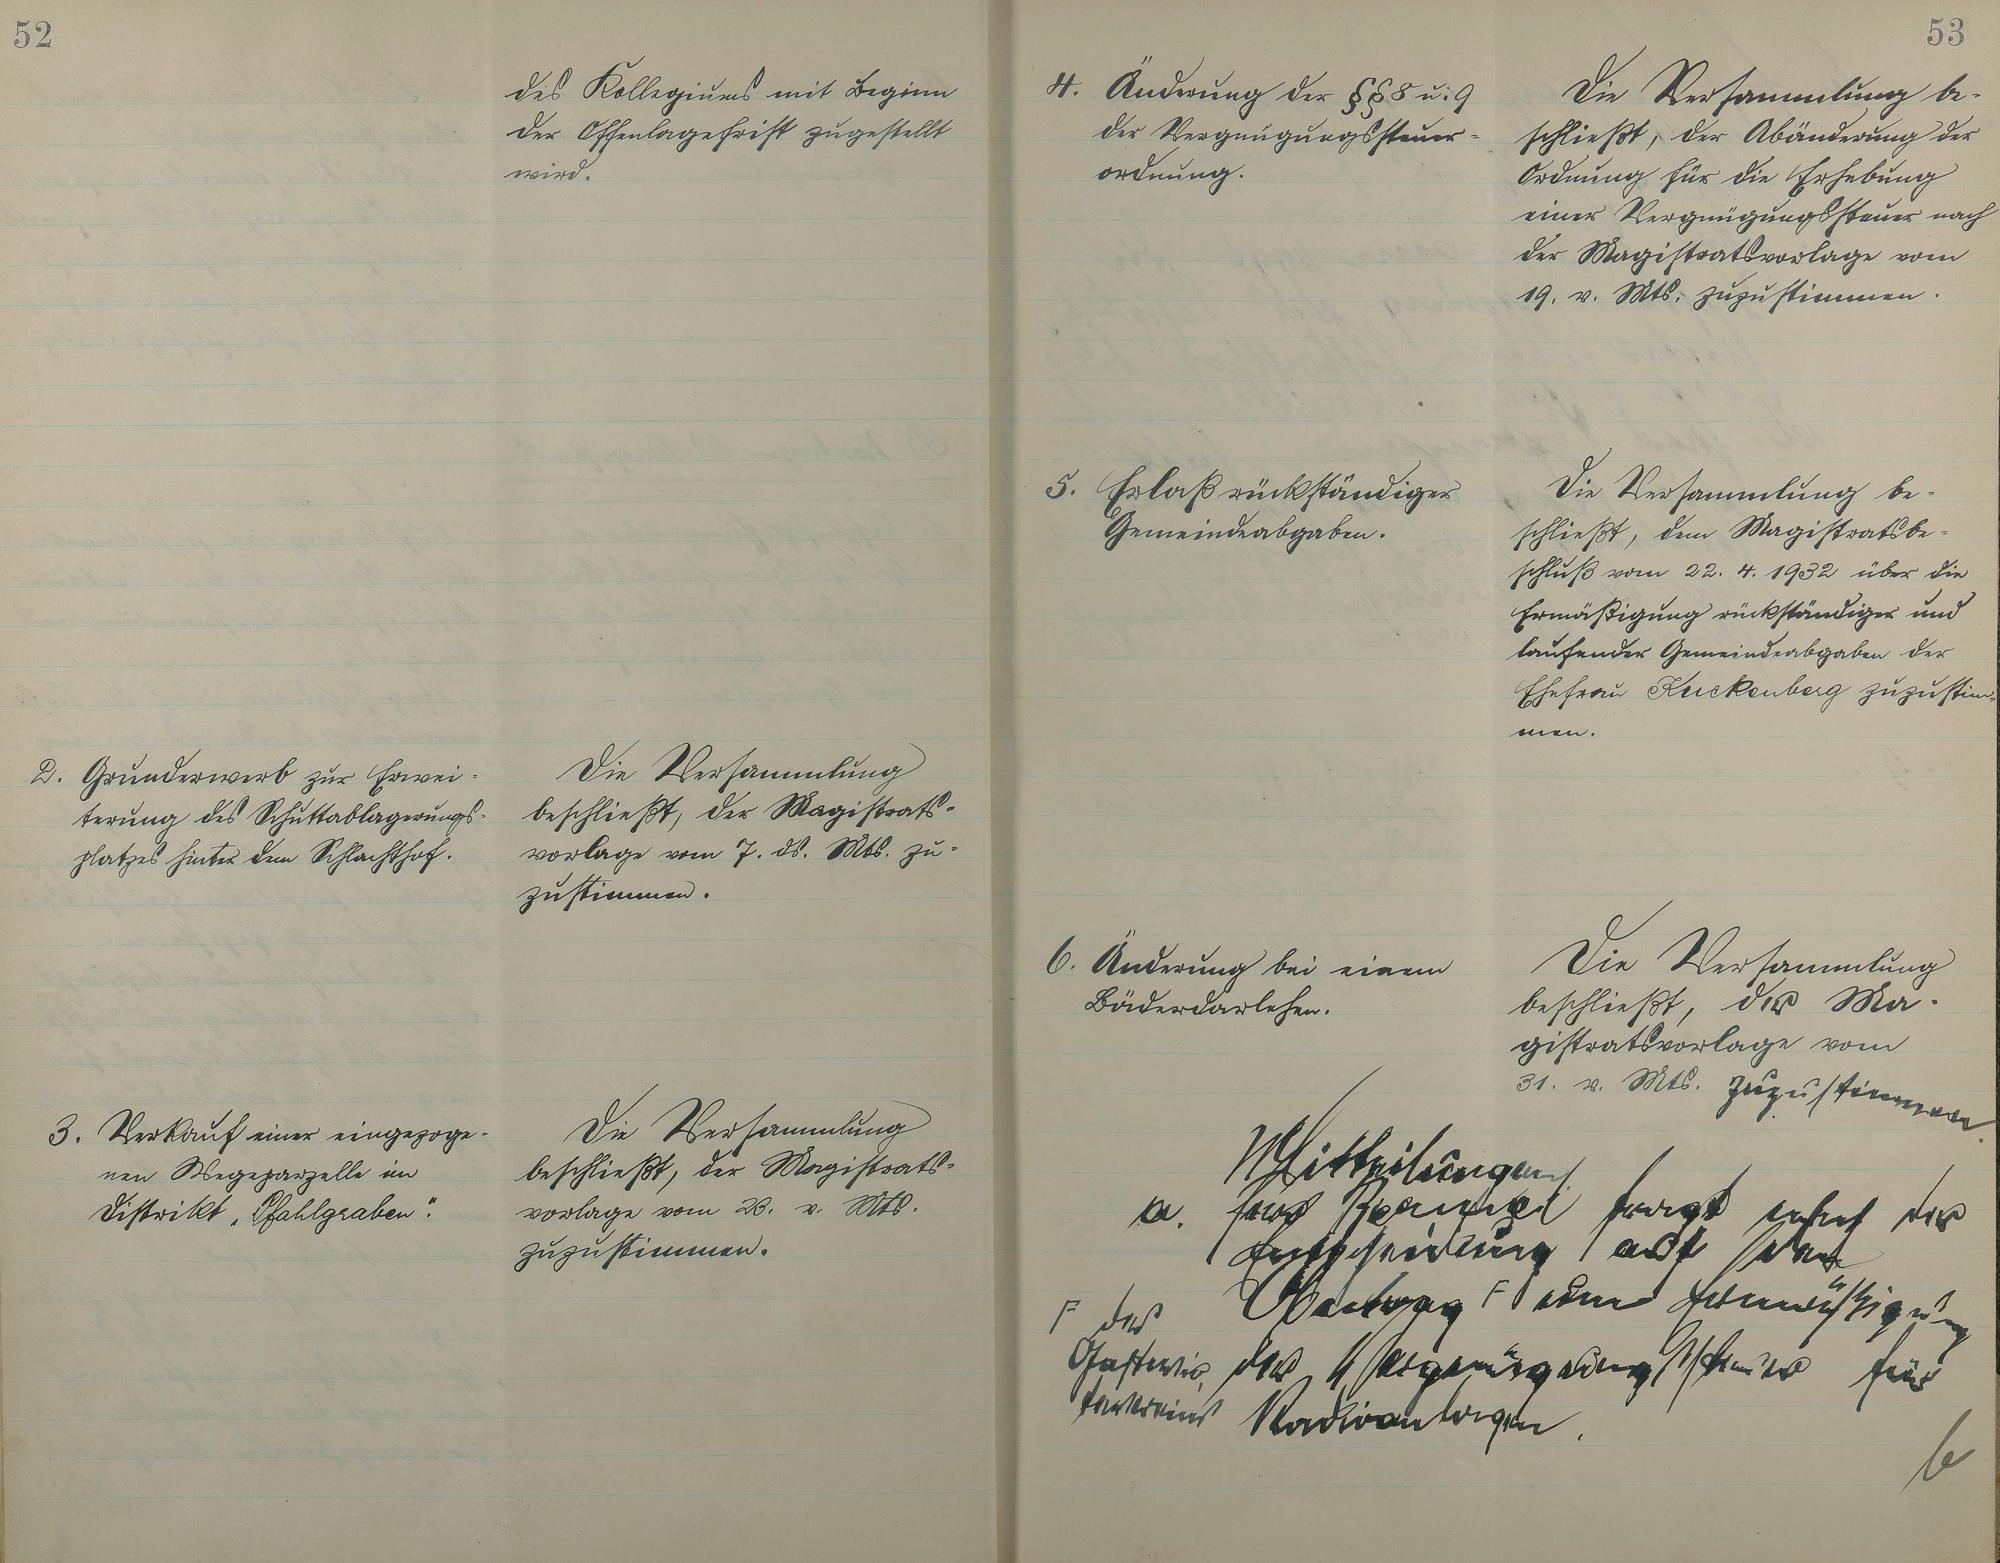 52
des Kollegiums mit Beginn
der Offenlagefrist zugestellt
wird.
2. Grunderwerb zur Erwei-
terung des Schuttablagerungs-
platzes hinter dem Schlachthof.
Die Versammlung
beschließt, der Magistrats-
vorlage vom 7. ds. Mts. zu-
zustimmen.
3. Verkauf einer eingezoge-
nen Wegeparzelle im
Distrikt „Pfahlgraben".
Die Versammlung
beschließt, der Magistrats-
vorlage vom 23. v. Mts.
zuzustimmen.
53
4. Änderung der §§ 8 u. 9
der Vergnügungssteuer-
ordnung.
Die Versammlung be-
schließt, der Abänderung der
Ordnung für die Erhebung
einer Vergnügungssteuer nach
der Magistratsvorlage vom
19. v. Mts. zuzustimmen.
5. Erlaß rückständiger
Gemeindeabgaben.
Die Versammlung be-
schließt, dem Magistratsbe-
schluß vom 22. 4. 1932 über die
Ermäßigung rückständiger und
laufender Gemeindeabgaben der
Ehefrau Kuckenberg zuzustim-
men.
6. Änderung bei einem
Bäderdarlehen.
Die Versammlung
beschließt, der Ma-
gistratsvorlage vom
31. v. Mts. zuzustimmen.
Mitteilungen
a. Herr fragt nach der
Entscheidung auf den
Antrag F um Ermäßigung
F des
Gastwir-
tevereins
der Vergnügungssteuer für
Radioanlagen.
b